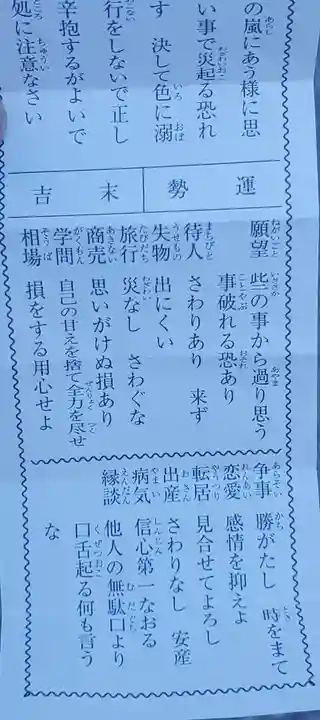 の嵐にあう様に思
い事で災起る恐れ
す 決して色に溺
行をしないで正し
辛抱するがよいで
処に注意なさい
運勢 末吉
願望 些の事から過り思う
事破れる恐あり
待人 さわりあり 来ず
失物 出にくい
旅行 災なし さわぐな
商売 思いがけぬ損あり
学問 自己の甘えを捨て全力を尽せ
相場 損をする用心せよ
争事 勝がたし 時をまて
恋愛 感情を抑えよ
転居 見合せてよろし
出産 さわりなし 安産
病気 信心第一なおる
縁談 他人の無駄口より
口舌起る何も言う
な